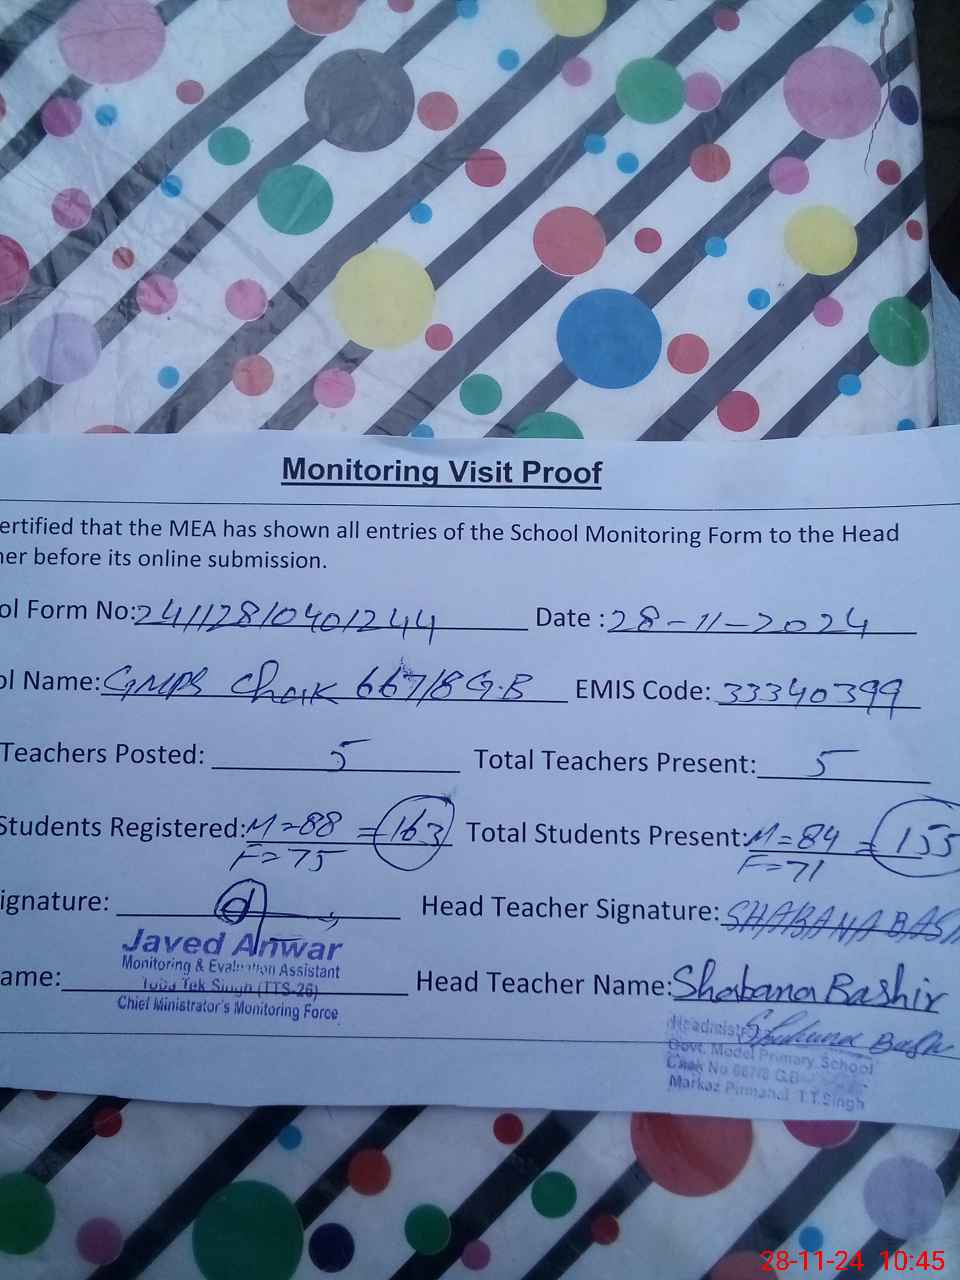 Monitoring Visit Proof
ertified that the MEA has shown all entries of the School Monitoring Form to the Head
her before its online submission.
ol Form No: 24112810401244 Date : 28-11-2024
ol Name: GMPS Chak 667/8 G.B EMIS Code: 33340399
Teachers Posted: 5 Total Teachers Present: 5
Students Registered: M=88 =163 Total Students Present: M=84 =155
F=75 F=71
ignature: Head Teacher Signature: SHABANA BAS
Javed Anwar
Monitoring & Evaluation Assistant
ame: Toba Tek Singh (TTS-26) Head Teacher Name: Shabana Bashir
Chief Minister's Monitoring Force
Shabana Bash
Govt. Model Primary School
Chak No 667/8 G.B
Markaz Pirmahal T.T.Singh
28-11-24 10:45